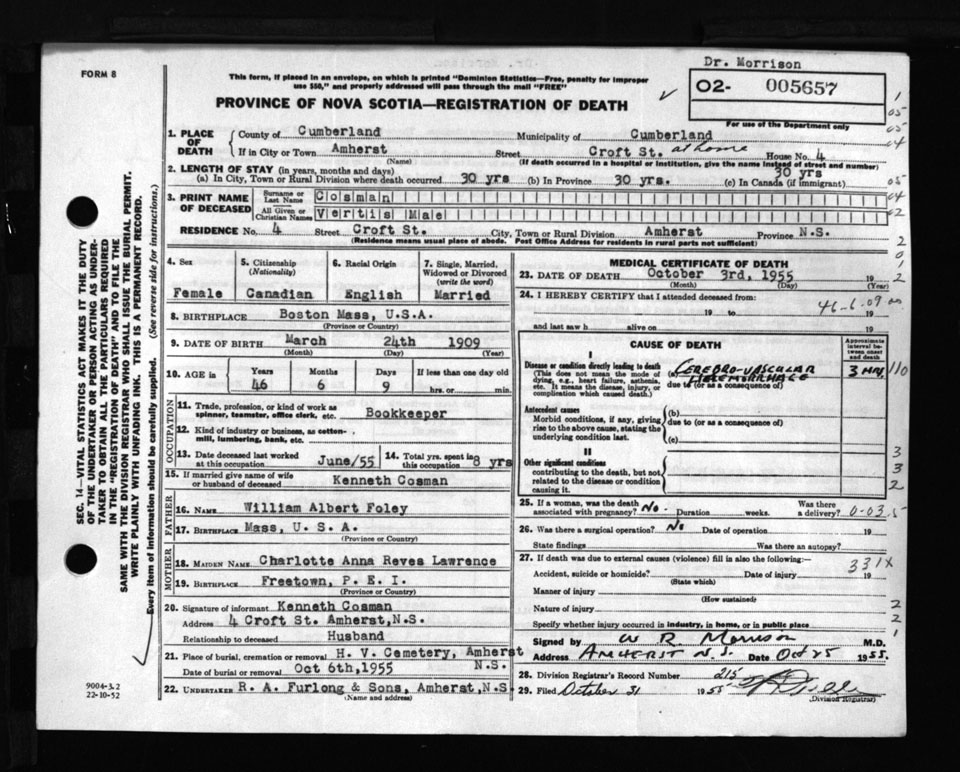 Dr. Morrison
FORM 8
This form, if placed in an envelope, on which is printed "Dominion Statistics—Free, penalty for improper
use $50," and properly addressed will pass through the mail "FREE"
02- 005657
For use of the Department only
PROVINCE OF NOVA SCOTIA—REGISTRATION OF DEATH
SEC. 14—VITAL STATISTICS ACT MAKES IT THE DUTY
OF THE UNDERTAKER OR PERSON ACTING AS UNDER-
TAKER TO OBTAIN ALL THE PARTICULARS REQUIRED
IN THE "REGISTRATION OF DEATH" AND TO FILE THE
SAME WITH THE DIVISION REGISTRAR WHO SHALL ISSUE THE BURIAL PERMIT.
WRITE PLAINLY WITH UNFADING INK. THIS IS A PERMANENT RECORD.
Every item of information should be carefully supplied. (See reverse side for instructions.)
1. PLACE OF DEATH
County of Cumberland Municipality of Cumberland
If in City or Town Amherst Street Croft St. at home House No. 4
(Name) (If death occurred in a hospital or institution, give the name instead of street and number)
2. LENGTH OF STAY (in years, months and days)
(a) In City, Town or Rural Division where death occurred 30 yrs (b) In Province 30 yrs. (c) In Canada (if immigrant) 30 yrs
3. PRINT NAME OF DECEASED
Surname or Last Name Cosman
All Given or Christian Names Vertis Mae
RESIDENCE No. 4 Street Croft St. City, Town or Rural Division Amherst Province N.S.
(Residence means usual place of abode. Post Office Address for residents in rural parts not sufficient)
4. Sex
Female
5. Citizenship
(Nationality)
Canadian
6. Racial Origin
English
7. Single, Married,
Widowed or Divorced
(write the word)
Married
8. BIRTHPLACE Boston Mass, U.S.A.
(Province or Country)
9. DATE OF BIRTH March 24th 1909
(Month) (Day) (Year)
10. AGE in Years Months Days If less than one day old
46 6 9 hrs. or min.
OCCUPATION
11. Trade, profession, or kind of work as
spinner, teamster, office clerk, etc. Bookkeeper
12. Kind of industry or business, as cotton-
mill, lumbering, bank, etc.
13. Date deceased last worked
at this occupation June/55
14. Total yrs. spent in
this occupation 8 yrs
15. If married give name of wife
or husband of deceased Kenneth Cosman
FATHER
16. NAME William Albert Foley
17. BIRTHPLACE Mass, U.S.A.
(Province or Country)
MOTHER
18. MAIDEN NAME Charlotte Anna Reves Lawrence
19. BIRTHPLACE Freetown, P.E.I.
(Province or Country)
20. Signature of informant Kenneth Cosman
Address 4 Croft St. Amherst,N.S.
Relationship to deceased Husband
21. Place of burial, cremation or removal H. V. Cemetery, Amherst
N.S.
Date of burial or removal Oct 6th,1955
22. UNDERTAKER R. A. Furlong & Sons, Amherst,N.S.
(Name and address)
9004-3.2
22-10-52
MEDICAL CERTIFICATE OF DEATH
23. DATE OF DEATH October 3rd, 1955 19
(Month) (Day) (Year)
24. I HEREBY CERTIFY that I attended deceased from:
46-6-09
19 to 19
and last saw h alive on 19
CAUSE OF DEATH
Approximate
interval be-
tween onset
and death
I
Disease or condition directly leading to death
(This does not mean the mode of
dying, e.g., heart failure, asthenia,
etc. It means the disease, injury, or
complication which caused death.)
(a) CEREBRO-VASCULAR
HAEMORRHAGE
due to (or as a consequence of)
Antecedent causes
Morbid conditions, if any, giving
rise to the above cause, stating the
underlying condition last.
(b)
due to (or as a consequence of)
(c)
II
Other significant conditions
contributing to the death, but not
related to the disease or condition
causing it.
25. If a woman, was the death
associated with pregnancy? No. Duration weeks. Was there
a delivery?
26. Was there a surgical operation? No Date of operation 19
State findings Was there an autopsy?
27. If death was due to external causes (violence) fill in also the following:
331X
Accident, suicide or homicide? Date of injury 19
(State which)
Manner of injury
(How sustained)
Nature of injury
Specify whether injury occurred in industry, in home, or in public place
Signed by W R Morrison M.D.
Address AMHERST N.S. Date Oct 25 1955.
28. Division Registrar's Record Number 215
29. Filed October 31 1955
(Division Registrar)